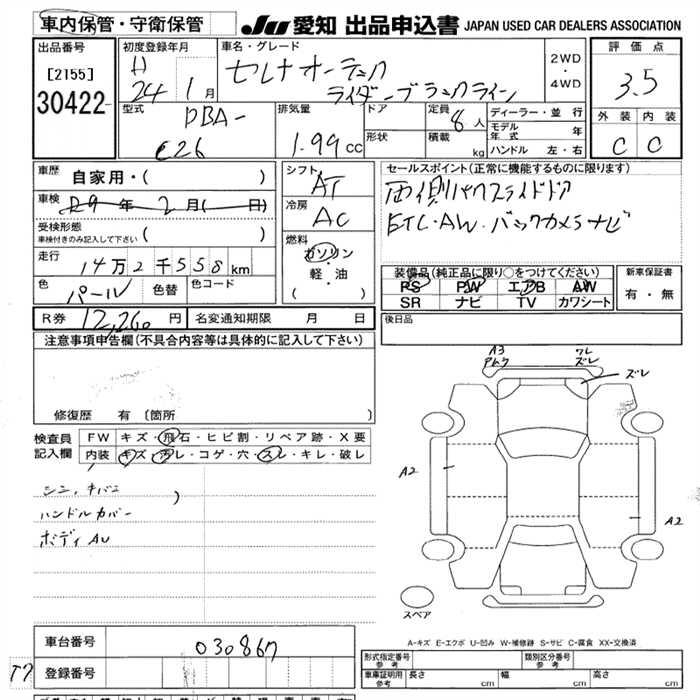 車内保管・守衛保管
JU 愛知 出品申込書 JAPAN USED CAR DEALERS ASSOCIATION
出品番号
[2155]
30422
初度登録年月
H
24 1 月
車名・グレード
セレナオーテック
ライダーブラックライン
2WD
・
4WD
評価点
3.5
外装 内装
C C
型式
DBA-
C26
排気量
1.99 cc
ドア
形状
定員 8 人
積載 kg
ディーラー・並行
モデル年式 年
ハンドル 左・右
車歴
自家用・( )
車検
R9 年 2 月 ( 日)
受検形態
車検付きのみ記入して下さい ( )
走行
14万2千558 km
色
パール
色替
色コード
シフト
AT
冷房
AC
燃料
ガソリン
・
軽・油
( )
セールスポイント(正常に機能するものに限ります)
両側パワースライドドア
ETC・AW・バックカメラナビ
装備品(純正品に限り○をつけてください)
PS PW エアB AW
SR ナビ TV カワシート
新車保証書
有・無
R券 12,260 円 名変通知期限 月 日
後日品
注意事項申告欄(不具合内容等は具体的に記入して下さい)
修復歴 有 〔箇所 〕
検査員
記入欄
FW キズ・飛石・ヒビ割・リペア跡・X要
内装 キズ・汚レ・コゲ・穴・スレ・キレ・破レ
ハンドルカバー
ボディAU
A3
ワレ
ズレ
ズレ
A2
A2
スペア
A-キズ E-エクボ U-凹み W-補修跡 S-サビ C-腐食 XX-交換済
車台番号
030867
T7
登録番号
型式指定番号
参考
類別区分番号
参考
車庫証明用
参考
長さ cm 幅 cm 高さ cm